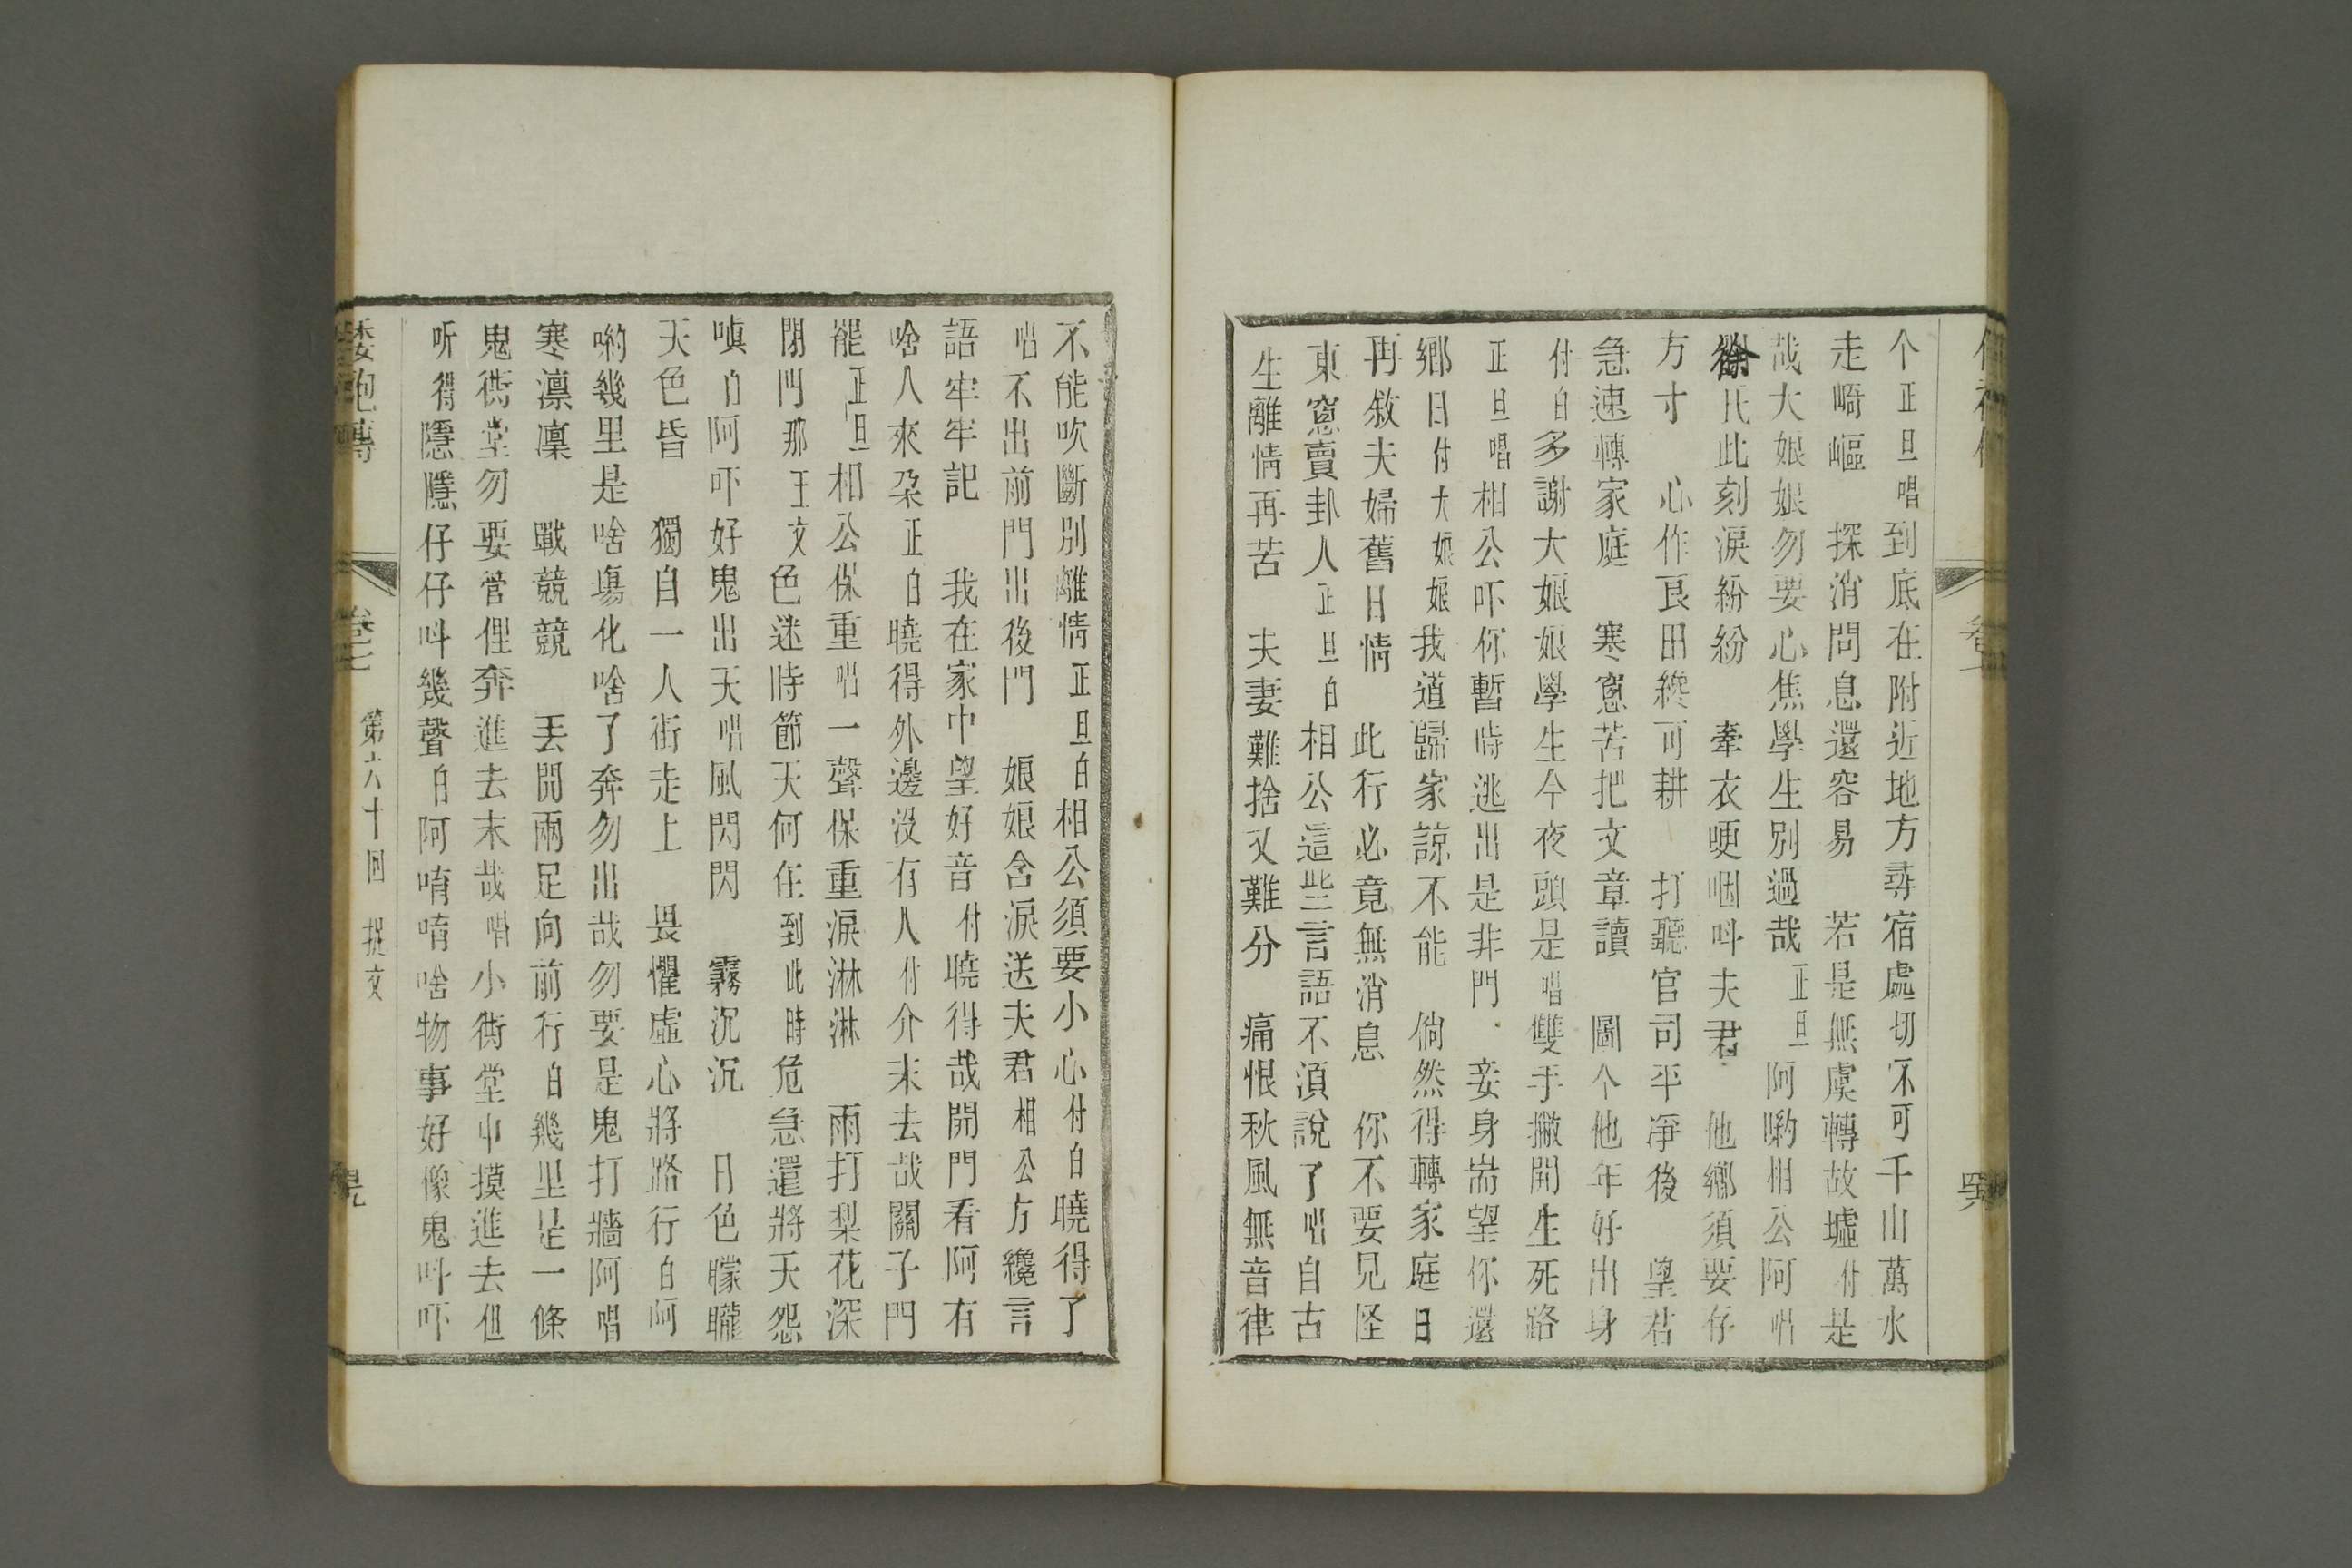 个正旦唱到底在附近地方尋宿處切不可千山萬水
走崎嶇 探消問息還容易 若是無虞轉故墟付是
哉大娘娘勿要心焦學生別過哉正旦阿喲相公阿唱
徐氏此刻淚紛紛 牽衣哽咽呌夫君 他鄉須要存
方寸 心作良田纔可耕 打聽官司平淨後 望君
急速轉家庭 寒窻苦把文章讀 圖个他年好出身
付白多謝大娘娘學生今夜頭是唱雙手撇開生死路
正旦唱相公吓你暫時逃出是非門 妾身耑望你還
鄉日付大娘娘我道歸家諒不能 倘然得轉家庭日
再敘夫婦舊日情 此行必竟無消息 你不要見怪
東窻賣卦人正旦白相公這些言語不須說了唱自古
生離情再苦 夫妻難捨又難分 痛恨秋風無音律
不能吹斷別離情正旦白相公須要小心付白曉得了
唱不出前門出後門 娘娘含淚送夫君相公方纔言
語牢牢記 我在家中望好音付曉得哉開門看阿有
啥人來朶正白曉得外邊没有人付介末去哉關子門
罷正旦相公保重唱一聲保重淚淋淋 雨打梨花深
閉門那王文色迷時節天何在到此時危急還將天怨
嗔白阿吓好鬼出天唱風閃閃 霧沉沉 月色朦朧
天色昏 獨自一人街走上 畏懼虛心將路行白阿
喲幾里是啥場化啥了奔勿出哉勿要是鬼打牆阿唱
寒凛凜 戰競競 丟開兩足向前行白幾里是一條
鬼衖堂勿要管俚奔進去末哉唱小衖堂中摸進去但
听得隱隱仔仔呌幾聲白阿唷唷啥物事好像鬼呌吓
倭袍傳 卷七 第六十回 捉文